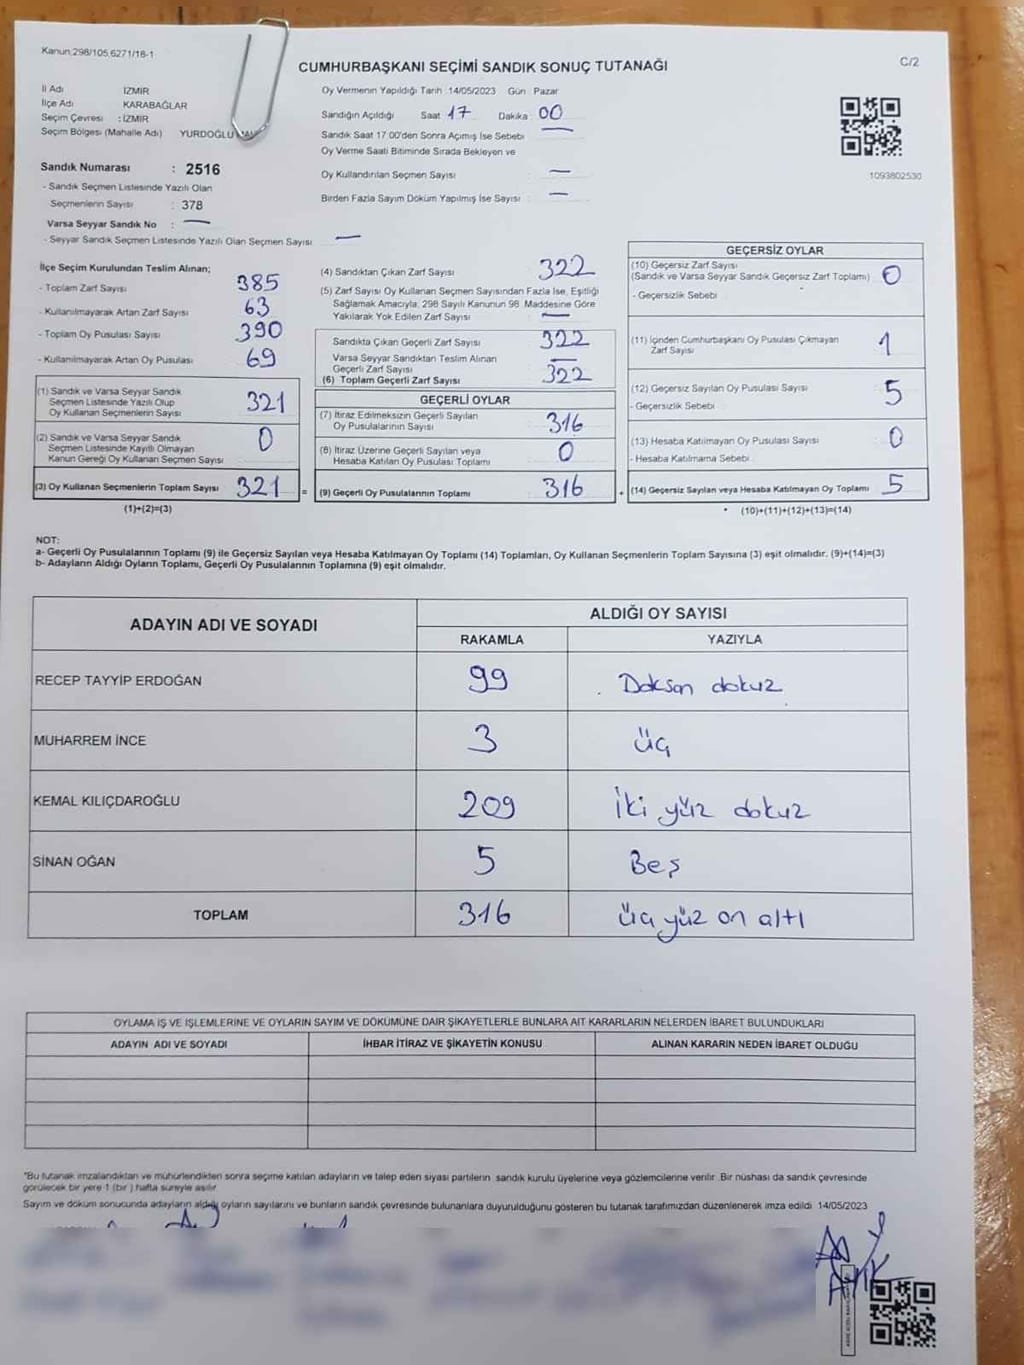 Kanun 298/105,6271/18-1
CUMHURBAŞKANI SEÇİMİ SANDIK SONUÇ TUTANAĞI
C/2
İl Adı İZMİR
İlçe Adı KARABAĞLAR
Seçim Çevresi : İZMİR
Seçim Bölgesi (Mahalle Adı) YURDOĞLU
Oy Vermenin Yapıldığı Tarih : 14/05/2023 Gün : Pazar
Sandığın Açıldığı Saat 17 Dakika 00
Sandık Saat 17 00'den Sonra Açımış İse Sebebi —
Oy Verme Saati Bitiminde Sırada Bekleyen ve
Oy Kullandırılan Seçmen Sayısı —
Birden Fazla Sayım Döküm Yapılmış İse Sayısı —
1093802530
Sandık Numarası : 2516
- Sandık Seçmen Listesinde Yazılı Olan
Seçmenlerin Sayısı : 378
Varsa Seyyar Sandık No : —
- Seyyar Sandık Seçmen Listesinde Yazılı Olan Seçmen Sayısı —
İlçe Seçim Kurulundan Teslim Alınan;
- Toplam Zarf Sayısı 385
- Kullanılmayarak Artan Zarf Sayısı 63
- Toplam Oy Pusulası Sayısı 390
- Kullanılmayarak Artan Oy Pusulası 69
(1) Sandık ve Varsa Seyyar Sandık
Seçmen Listesinde Yazılı Olup
Oy Kullanan Seçmenlerin Sayısı 321
(2) Sandık ve Varsa Seyyar Sandık
Seçmen Listesinde Kayıtlı Olmayan
Kanun Gereği Oy Kullanan Seçmen Sayısı 0
(3) Oy Kullanan Seçmenlerin Toplam Sayısı 321
(1)+(2)=(3)
=
(4) Sandıktan Çıkan Zarf Sayısı 322
(5) Zarf Sayısı Oy Kullanan Seçmen Sayısından Fazla İse, Eşitliği
Sağlamak Amacıyla, 298 Sayılı Kanunun 98 Maddesine Göre
Yakılarak Yok Edilen Zarf Sayısı —
Sandıkta Çıkan Geçerli Zarf Sayısı 322
Varsa Seyyar Sandıktan Teslim Alınan
Geçerli Zarf Sayısı —
(6) Toplam Geçerli Zarf Sayısı 322
GEÇERLİ OYLAR
(7) İtiraz Edilmeksizin Geçerli Sayılan
Oy Pusulalarının Sayısı 316
(8) İtiraz Üzerine Geçerli Sayılan veya
Hesaba Katılan Oy Pusulası Toplamı 0
(9) Geçerli Oy Pusulalarının Toplamı 316
+
GEÇERSİZ OYLAR
(10) Geçersiz Zarf Sayısı
(Sandık ve Varsa Seyyar Sandık Geçersiz Zarf Toplamı) 0
- Geçersizlik Sebebi
(11) İçinden Cumhurbaşkanı Oy Pusulası Çıkmayan
Zarf Sayısı 1
(12) Geçersiz Sayılan Oy Pusulası Sayısı 5
- Geçersizlik Sebebi
(13) Hesaba Katılmayan Oy Pusulası Sayısı 0
- Hesaba Katılmama Sebebi
(14) Geçersiz Sayılan veya Hesaba Katılmayan Oy Toplamı 5
(10)+(11)+(12)+(13)=(14)
NOT:
a- Geçerli Oy Pusulalarının Toplamı (9) ile Geçersiz Sayılan veya Hesaba Katılmayan Oy Toplamı (14) Toplamları, Oy Kullanan Seçmenlerin Toplam Sayısına (3) eşit olmalıdır. (9)+(14)=(3)
b- Adayların Aldığı Oyların Toplamı, Geçerli Oy Pusulalarının Toplamına (9) eşit olmalıdır.
ADAYIN ADI VE SOYADI
ALDIĞI OY SAYISI
RAKAMLA YAZIYLA
RECEP TAYYİP ERDOĞAN 99 Doksan dokuz
MUHARREM İNCE 3 üç
KEMAL KILIÇDAROĞLU 209 İki yüz dokuz
SİNAN OĞAN 5 Beş
TOPLAM 316 üç yüz on altı
OYLAMA İŞ VE İŞLEMLERİNE VE OYLARIN SAYIM VE DÖKÜMÜNE DAİR ŞİKAYETLERLE BUNLARA AİT KARARLARIN NELERDEN İBARET BULUNDUKLARI
ADAYIN ADI VE SOYADI İHBAR İTİRAZ VE ŞİKAYETİN KONUSU ALINAN KARARIN NEDEN İBARET OLDUĞU
"Bu tutanak imzalandıktan ve mühürlendikten sonra seçime katılan adayların ve talep eden siyasi partilerin sandık kurulu üyelerine veya gözlemcilerine verilir .Bir nüshası da sandık çevresinde
görülecek bir yere 1 (bir ) hafta süreyle asılır
Sayım ve döküm sonucunda adayların aldığı oyların sayılarını ve bunların sandık çevresinde bulunanlara duyurulduğunu gösteren bu tutanak tarafımızdan düzenlenerek imza edildi 14/05/2023